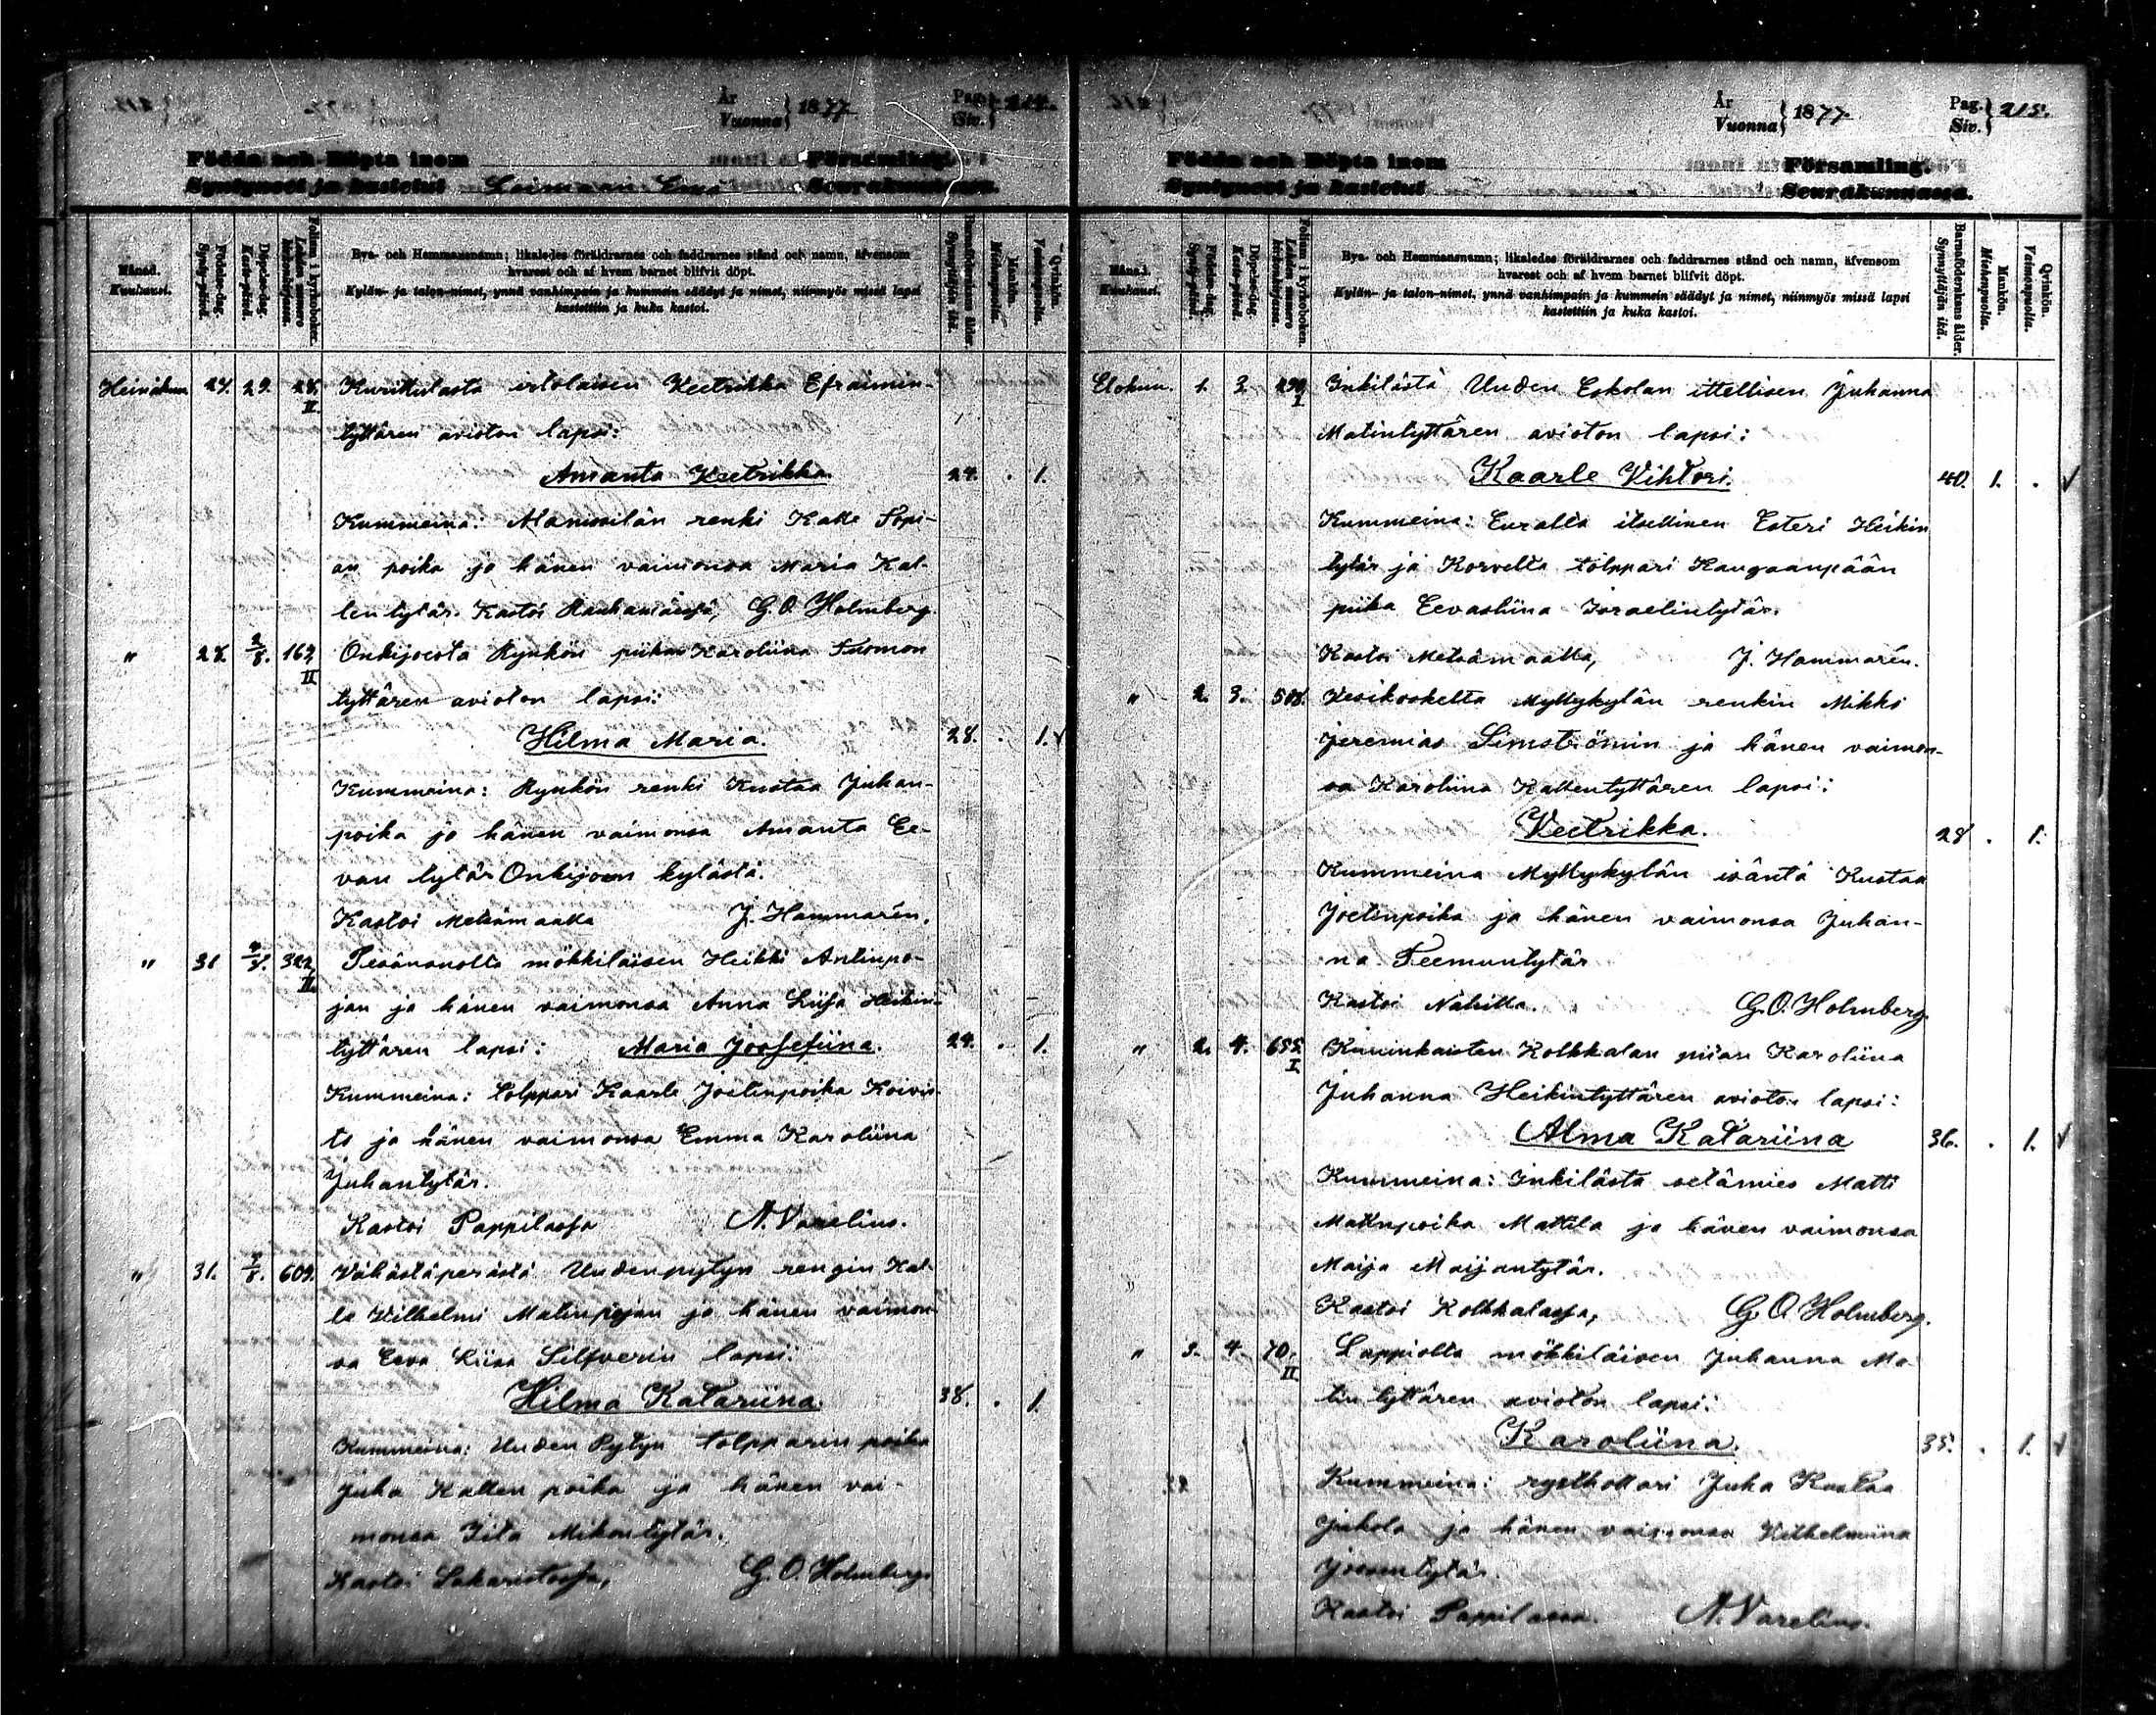 År
Vuonna } 1877. Pag.
Siv. } 214.
Födda och Döpta inom Församling.
Syntyneet ja kastetut Loimaan Emä Seurakunnassa.
Månad.
Kuukausi.
Födelse-dag.
Synty-päivä.
Döpelse-dag.
Kaste-päivä.
Folium i kyrkoboken.
Lehden numero kirkonkirjassa.
Bya- och Hemmansnamn; likaledes föräldrarnes och faddrarnes stånd och namn, äfvensom
hvarest och af hvem barnet blifvit döpt.
Kylän- ja talon-nimet, ynnä vanhimpain ja kummein säädyt ja nimet, niinmyös missä lapsi
kastettiin ja kuka kastoi.
Barnaföderskans ålder.
Synnyttäjän ikä.
Mankön.
Miehenpuolia.
Qvinkön.
Vaimonpuolia.
Heinäkuu 27. 29. 28. II. Kurittulasta irtolaisen Veetrikka Efraimin-
tyttären avioton lapsi:
Amanta Veetrikka. 24. . 1.
Kummeina: Mannilän renki Kalle Sopi-
an poika ja hänen vaimonsa Maria Kal-
len tytär. Kastoi Rauhamäessä, G. O. Holmberg
" 28. 2/8. 163, II Onkijoesta Rynkön piikan Karoliina Tuomon
tyttären avioton lapsi:
Hilma Maria. 28. . 1. √
Kummeina: Rynkön renki Kustaa Juhan-
poika ja hänen vaimonsa Amanta Ee-
van tytär Onkijoen kylästä.
Kastoi Metsämaalla J. Hammarén.
" 31 4/8. 322, II. Pesänsuolta mökkiläisen Heikki Antinpo-
jan ja hänen vaimonsa Anna Liisa Heikin-
tyttären lapsi: Maria Joosefiina. 29. . 1.
Kummeina: tolppari Kaarle Joelinpoika Koivis-
to ja hänen vaimonsa Emma Karoliina
Juhantytär.
Kastoi Pappilassa A. Varelius.
" 31. /8. 609. Vähästäperästä Uudenpytyn rengin Kal-
le Vilhelmi Matinpojan ja hänen vaimon-
sa Eeva Liisa Silfverin lapsi:
Hilma Katariina. 38. . 1.
Kummeina: Uuden Pytyn tolpparin poika
Juha Kallen poika ja hänen vai-
monsa Iita Mikontytär.
Kastoi Sakaristossa, G. O. Holmberg.
År
Vuonna } 1877. Pag.
Siv. } 215.
Födda och Döpta inom Församling.
Syntyneet ja kastetut Seurakunnassa.
Månad.
Kuukausi.
Födelse-dag.
Synty-päivä.
Döpelse-dag.
Kaste-päivä.
Folium i kyrkoboken.
Lehden numero kirkonkirjassa.
Bya- och Hemmansnamn; likaledes föräldrarnes och faddrarnes stånd och namn, äfvensom
hvarest och af hvem barnet blifvit döpt.
Kylän- ja talon-nimet, ynnä vanhimpain ja kummein säädyt ja nimet, niinmyös missä lapsi
kastettiin ja kuka kastoi.
Barnaföderskans ålder.
Synnyttäjän ikä.
Mankön.
Miehenpuolia.
Qvinkön.
Vaimonpuolia.
Elokuu. 1. 3. I Inkilästä Uuden Eskolan ittellisen Juhanna
Matintyttären avioton lapsi:
Kaarle Vihtori. 40. 1. . √
Kummeina: Euralla itsellinen Esteri Heikin
tytär ja Korvelta tolppari Kangaanpään
piika Eevastiina Israelintytär.
Kastoi Metsämaalla, J. Hammarén.
" 2. 3. 508. Vesikoskelta Myllykylän renkin Mikki
Jeremias Simströmin ja hänen vaimon-
sa Karoliina Kallentyttären lapsi:
Veetrikka. 28 . 1.
Kummeina Myllykylän isäntä Kustaa
Joelinpoika ja hänen vaimonsa Juhan-
na Teemuntytär
Kastoi G. O. Holmberg.
" 2. 4. 655. I Kuninkaisten Kolkkalan piian Karoliina
Juhanna Heikintyttären avioton lapsi:
Alma Katariina 36. . 1. √
Kummeina: Inkilästä setämies Matti
Matinpoika Mattila ja hänen vaimonsa
Maija Maijantytär.
Kastoi Kolkkalassa, G. O. Holmberg.
" 3. 4. 70. II Lappiolta mökkiläisen Juhanna Ma-
tin tyttären avioton lapsi:
Karoliina. 35. . 1. √
Kummeina: rysthollari Juha Kustaa
Jukola ja hänen vaimonsa Vilhelmiina
Joosentytär.
Kastoi Pappilassa. A. Varelius.